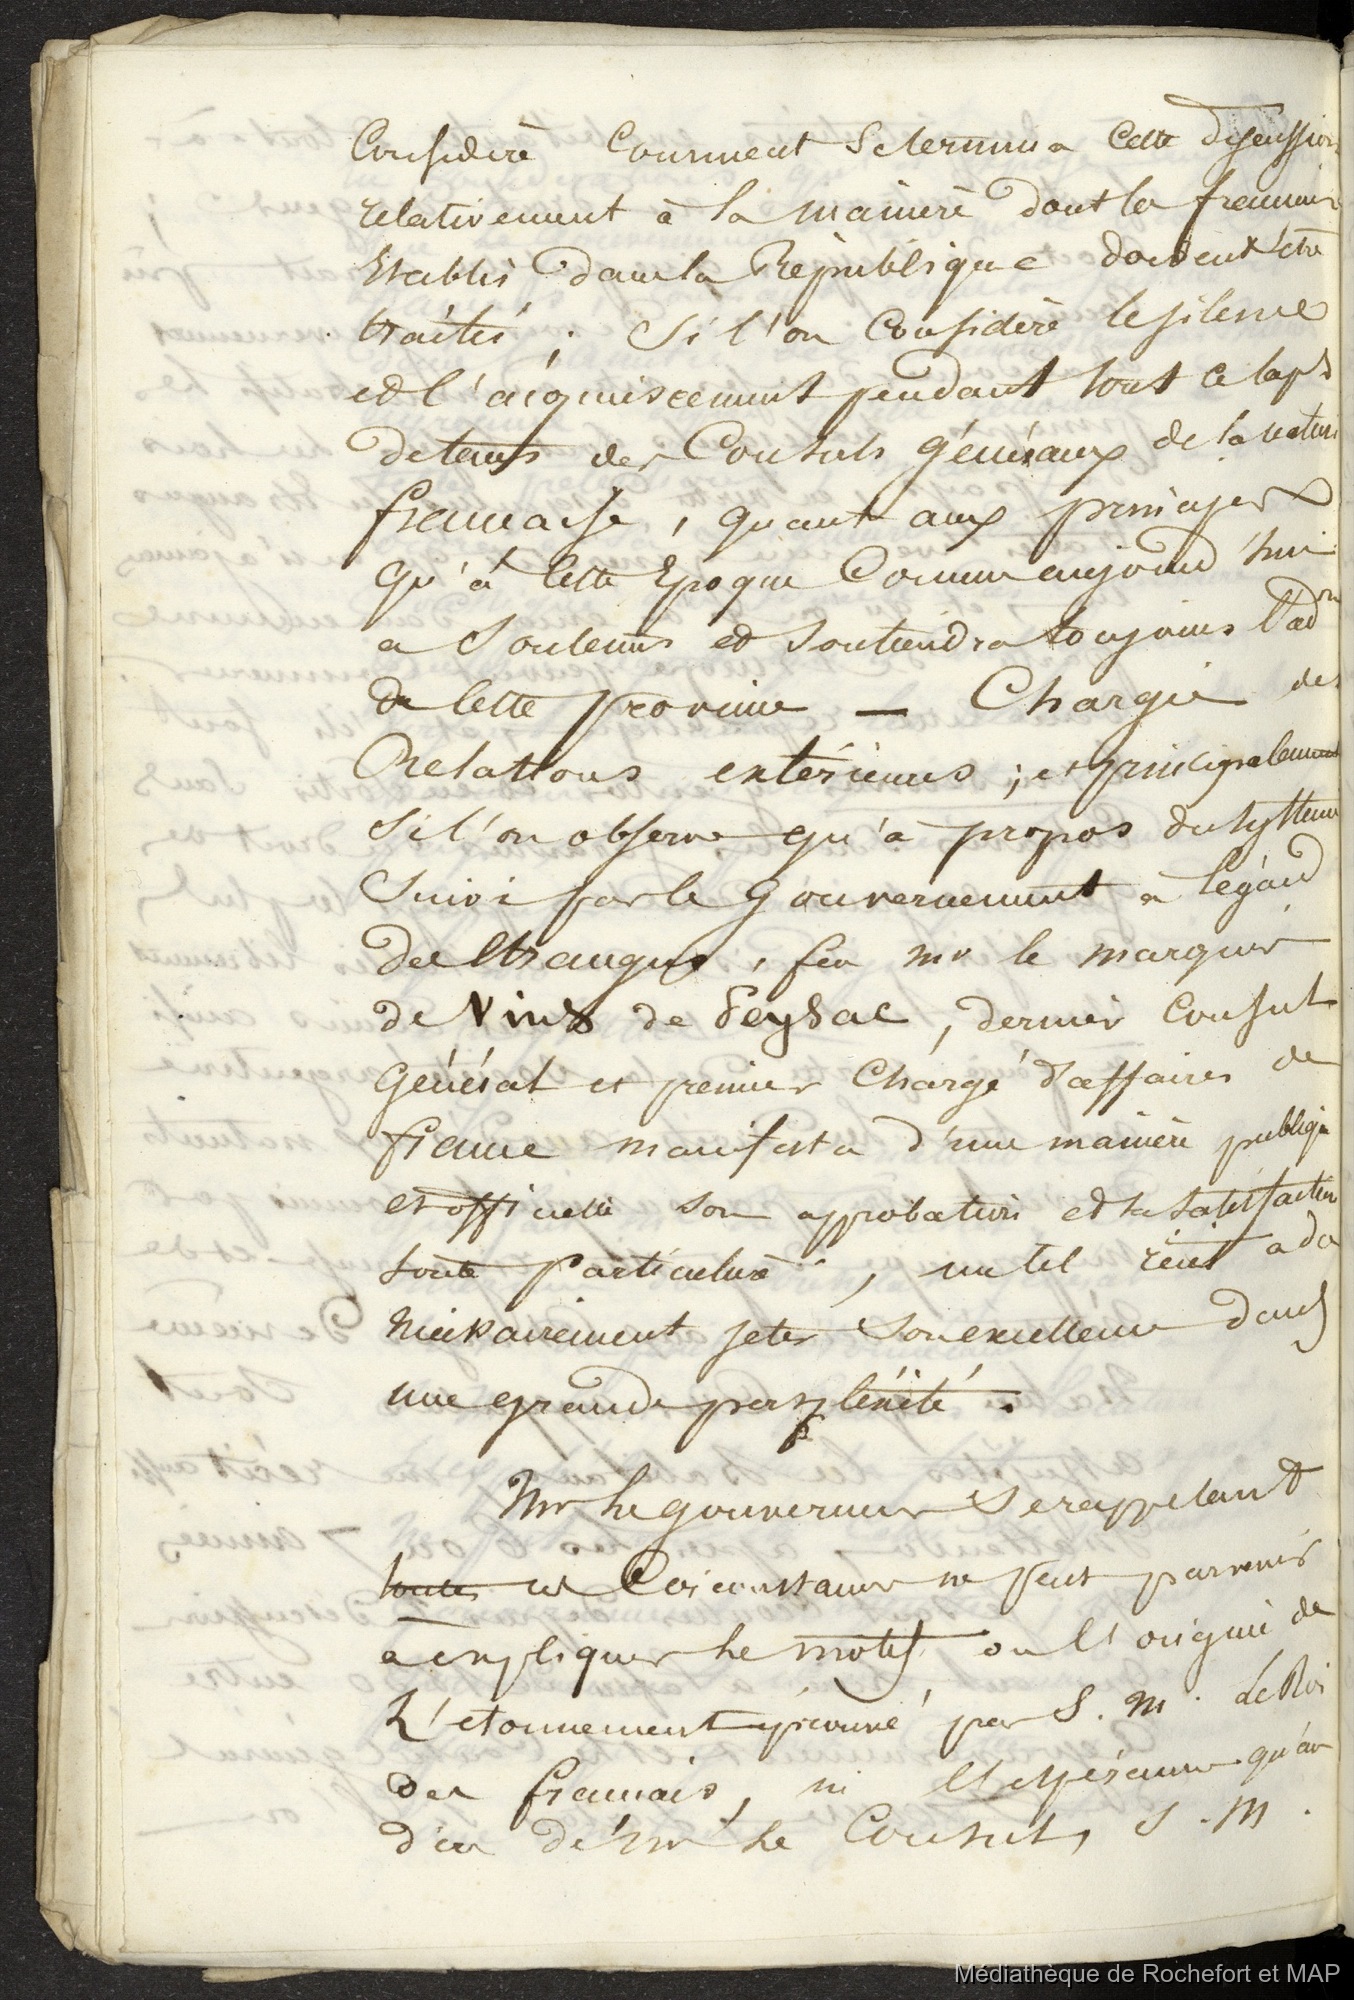 Considéré comment se termina cette discussion
relativement à la manière dont les français
Etablis dans la République doivent être
traités ; Si l'on Considère le silence
et l'acquiescement pendant tout ce laps
detems des Consuls généraux de la nation
française, quant aux principes
qu'à cette Epoque Comme aujourd'hui
a Soutenus et soutiendra toujours l'adon
de cette province — Chargée des
Relations extérieures ; et principalement
si l'on observe qu'à propos du systeme
Suivi par le gouvernement à l'égard
des Etrangers, feu mr le marquis
de Vins de Peysac, dernier Consul
Général et premier Chargé d'affaires de
france manifesta d'une manière publique
et officielle son approbation et sa satisfaction
toute particulière, un tel récit a du
nécéssairement jeter Son excellence dans
une grande perplexité.
Mr le gouverneur Se rappelant
toutes ces Circonstances ne peut parvenir
à expliquer le motif ou l'origine de
L'étonnement éprouvé par S. M. le Roi
des français, ni l'espérance qu'au
d'en de Mr le Consul, S. M.
Médiathèque de Rochefort et MAP